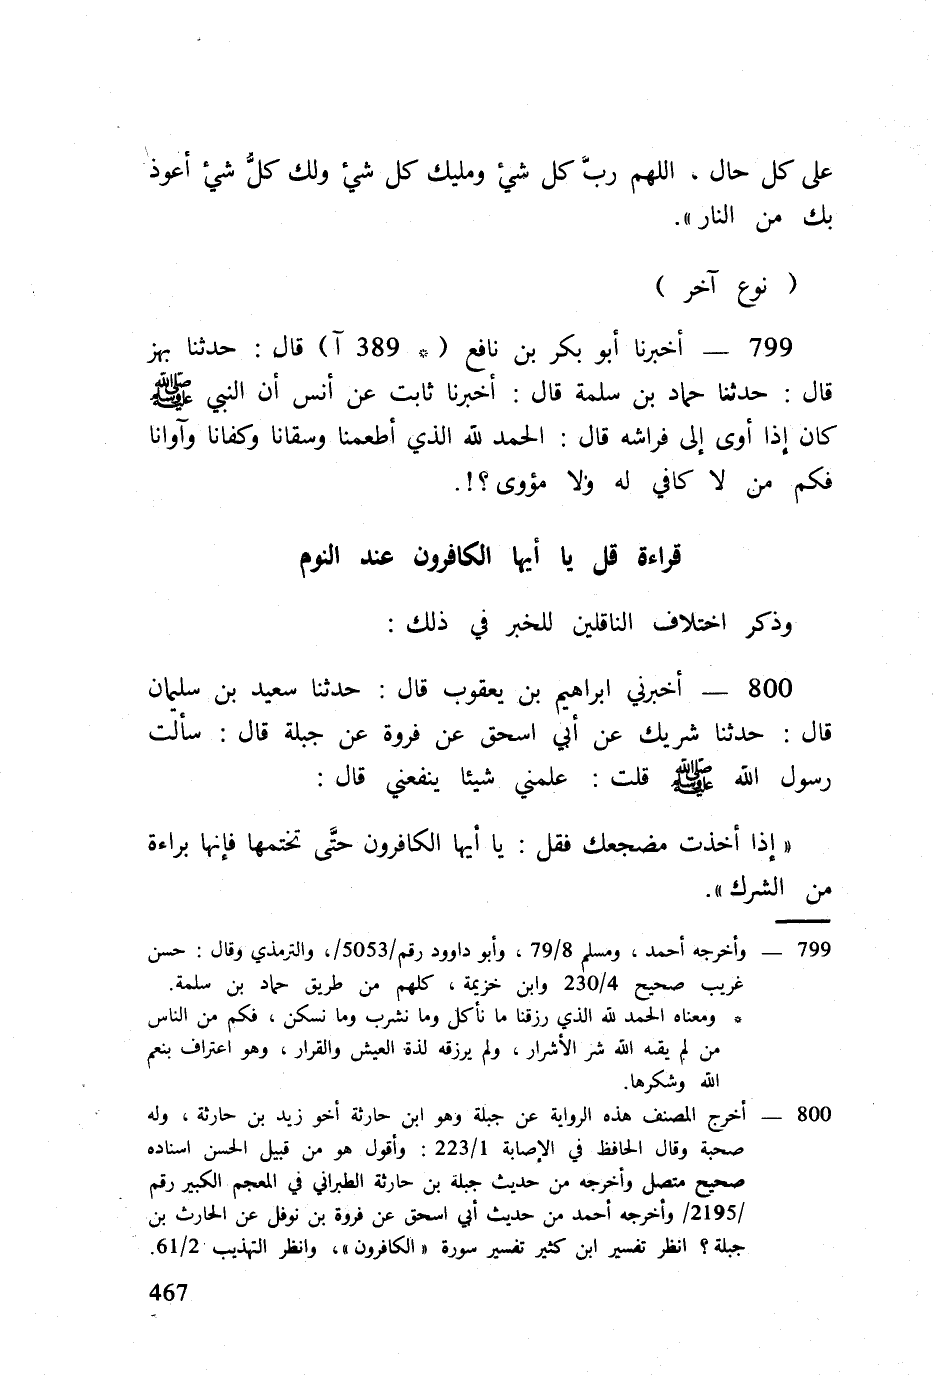 على كل حال ، اللهم ربَّ كل شيْ ومليك كل شيْ ولك كلُّ شيْ أعوذ
بك من النار ».
( نوع آخر )
799 — أخبرنا أبو بكر بن نافع ( * 389 آ) قال : حدثنا بهز
قال : حدثنا حماد بن سلمة قال : أخبرنا ثابت عن أنس أن النبي ﷺ
كان إذا أوى إلى فراشه قال : الحمد لله الذي أطعمنا وسقانا وكفانا وآوانا
فكم من لا كافي له ولا مؤوى ؟!.
قراءة قل يا أيها الكافرون عند النوم
وذكر اختلاف الناقلين للخبر في ذلك :
800 — أخبرني ابراهيم بن يعقوب قال : حدثنا سعيد بن سليمان
قال : حدثنا شريك عن أبي اسحق عن فروة عن جبلة قال : سألت
رسول الله ﷺ قلت : علمني شيئا ينفعني قال :
« إذا أخذت مضجعك فقل : يا أيها الكافرون حتَّى تختمها فإنها براءة
من الشرك ».
799 — وأخرجه أحمد ، ومسلم 79/8 ، وأبو داوود رقم/5053/، والترمذي وقال : حسن
غريب صحيح 230/4 وابن خزيمة ، كلهم من طريق حماد بن سلمة.
* ومعناه الحمد لله الذي رزقنا ما نأكل وما نشرب وما نسكن ، فكم من الناس
من لم يقه الله شر الأشرار ، ولم يرزقه لذة العيش والقرار ، وهو اعتراف بنعم
الله وشكرها.
800 — أخرج المصنف هذه الرواية عن جبلة وهو ابن حارثة أخو زيد بن حارثة ، وله
صحبة وقال الحافظ في الإصابة 223/1 : وأقول هو من قبيل الحسن اسناده
صحيح متصل وأخرجه من حديث جبلة بن حارثة الطبراني في المعجم الكبير رقم
/2195/ وأخرجه أحمد من حديث أبي اسحق عن فروة بن نوفل عن الحارث بن
جبلة ؟ انظر تفسير ابن كثير تفسير سورة « الكافرون »، وانظر التهذيب 61/2.
467